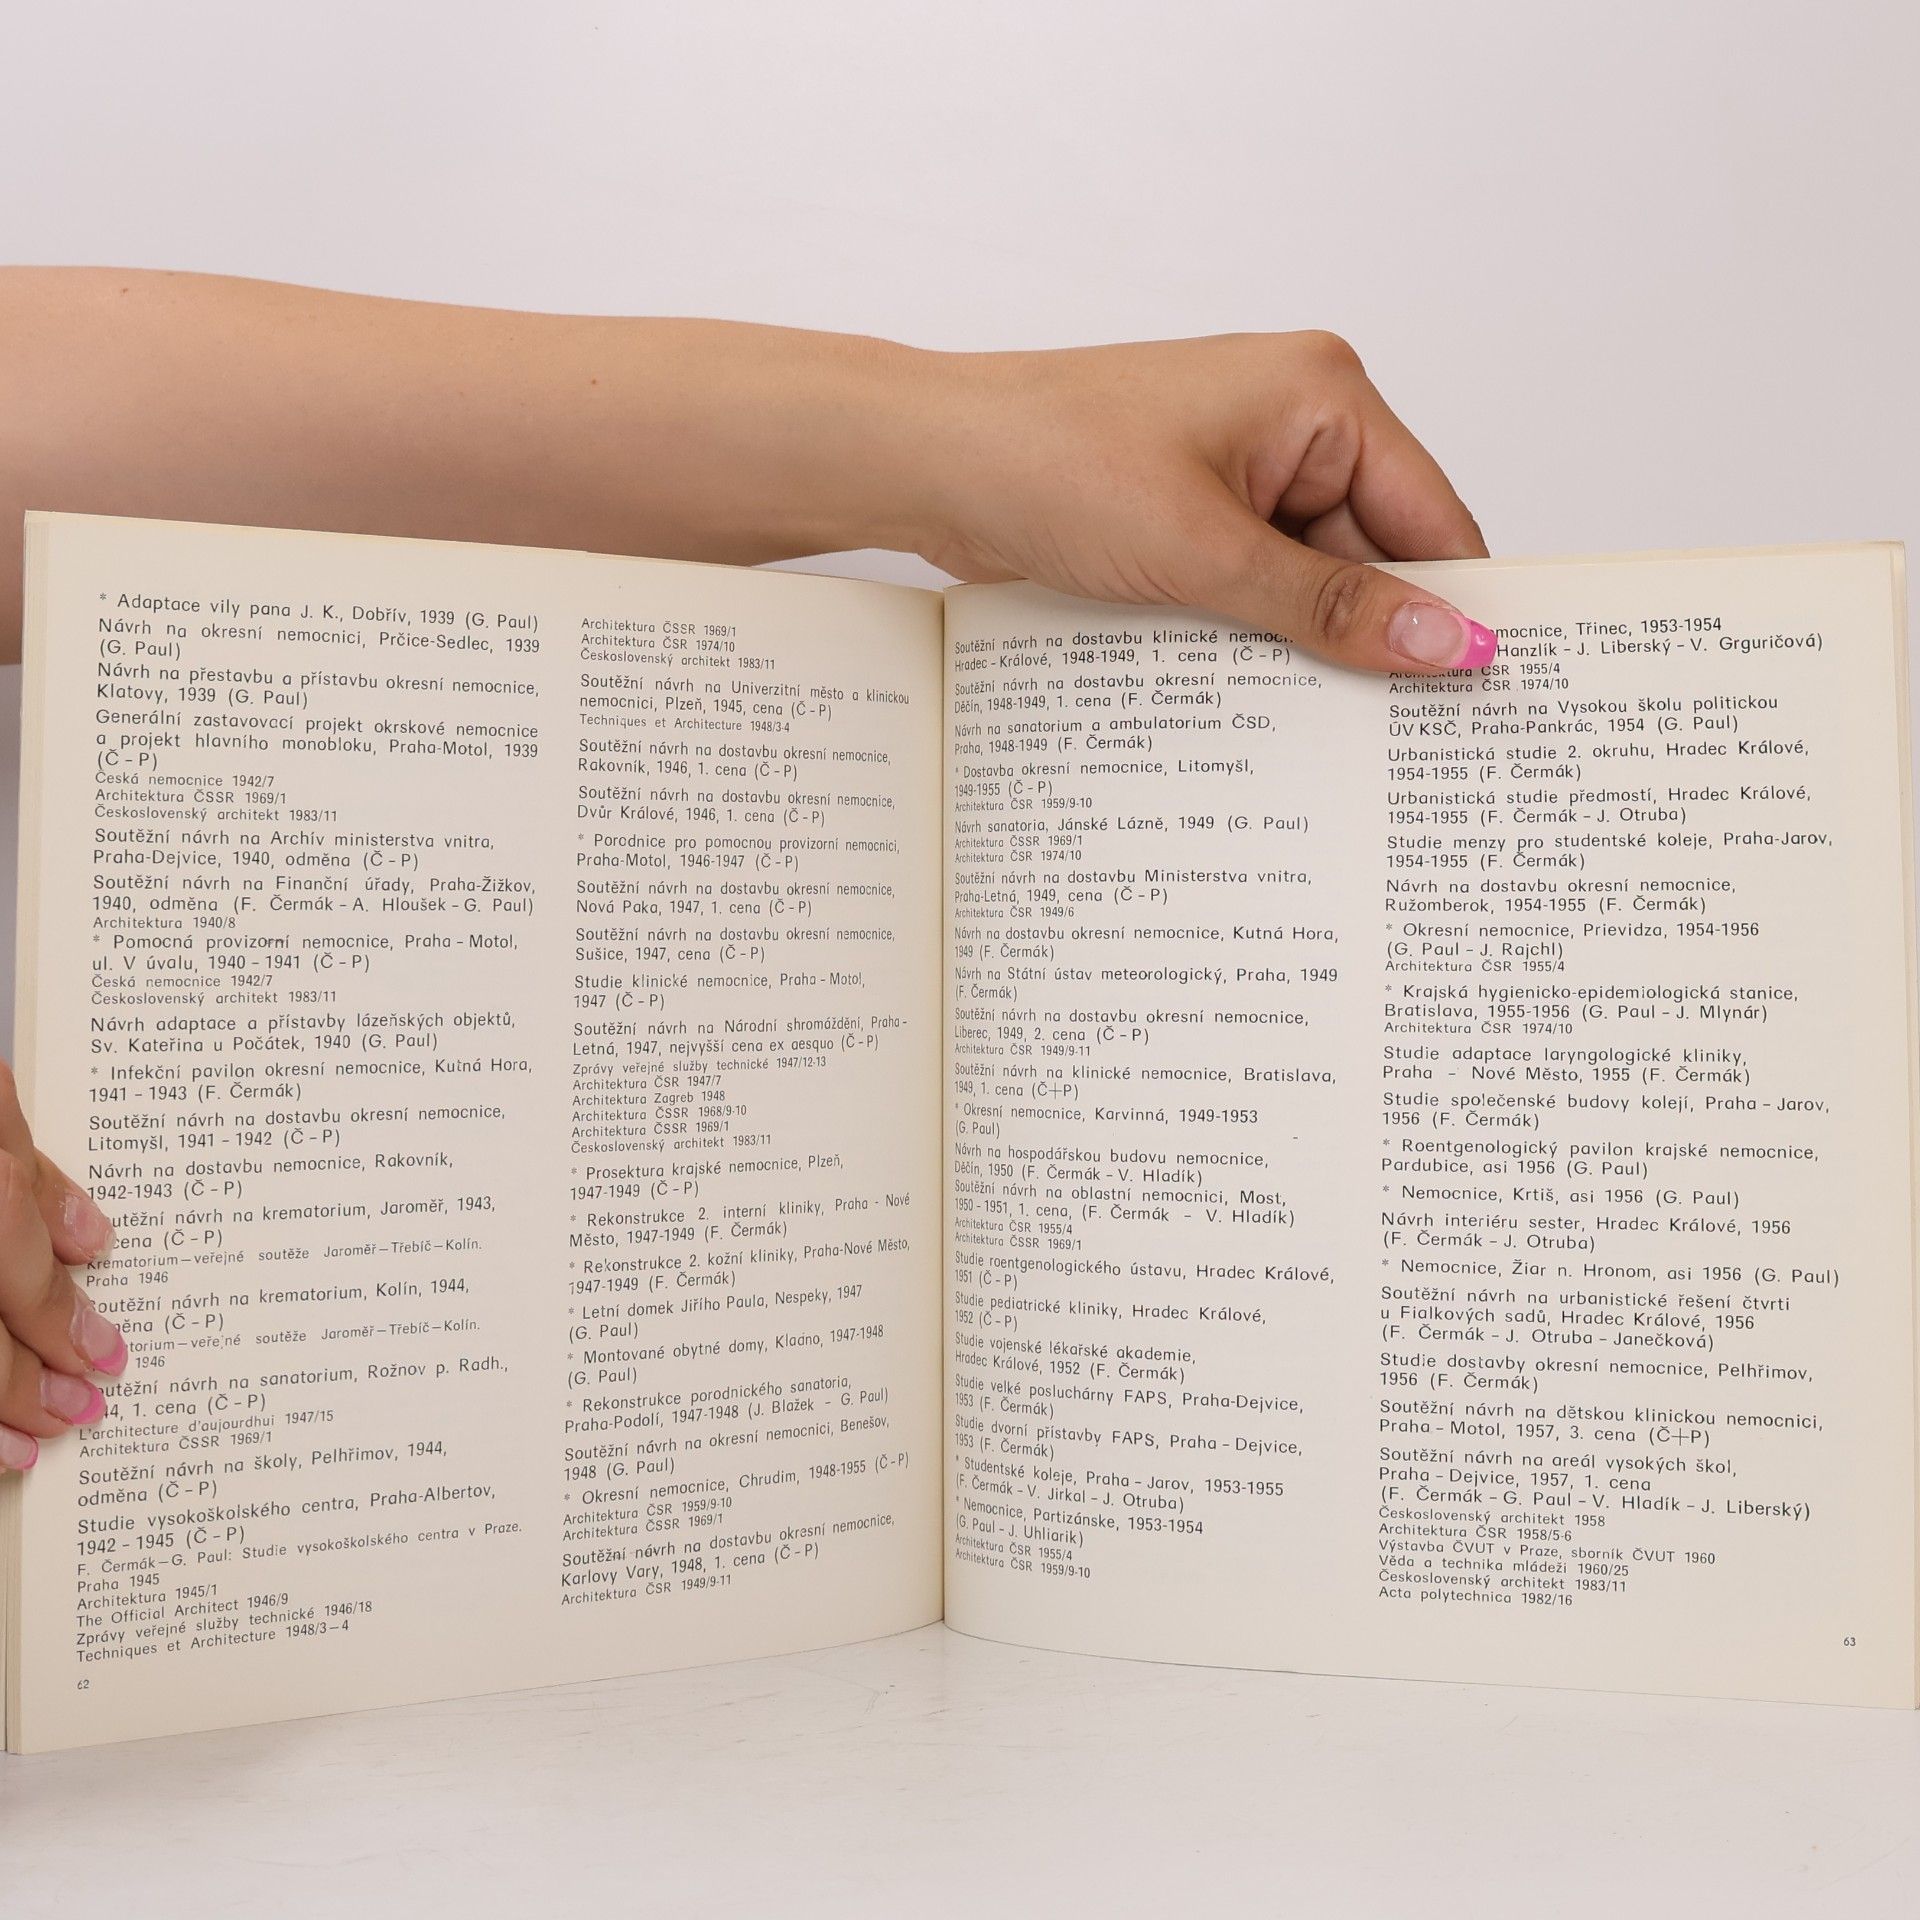 * Adaptace vily pana J. K., Dobřív, 1939 (G. Paul)
Návrh na okresní nemocnici, Prčice-Sedlec, 1939
(G. Paul)
Návrh na přestavbu a přístavbu okresní nemocnice,
Klatovy, 1939 (G. Paul)
Generální zastavovací projekt okrskové nemocnice
a projekt hlavního monobloku, Praha-Motol, 1939
(Č - P)
Česká nemocnice 1942/7
Architektura ČSSR 1969/1
Československý architekt 1983/11
Soutěžní návrh na Archív ministerstva vnitra,
Praha-Dejvice, 1940, odměna (Č - P)
Soutěžní návrh na Finanční úřady, Praha-Žižkov,
1940, odměna (F. Čermák - A. Hloušek - G. Paul)
Architektura 1940/8
* Pomocná provizorní nemocnice, Praha - Motol,
ul. V úvalu, 1940 - 1941 (Č - P)
Česká nemocnice 1942/7
Československý architekt 1983/11
Návrh adaptace a přístavby lázeňských objektů,
Sv. Kateřina u Počátek, 1940 (G. Paul)
* Infekční pavilon okresní nemocnice, Kutná Hora,
1941 - 1943 (F. Čermák)
Soutěžní návrh na dostavbu okresní nemocnice,
Litomyšl, 1941 - 1942 (Č - P)
Návrh na dostavbu nemocnice, Rakovník,
1942-1943 (Č - P)
návrh na krematorium, Jaroměř, 1943,
cena (Č - P)
Krematorium—veřejné soutěže Jaroměř—Třebíč—Kolín.
Praha 1946
Soutěžní návrh na krematorium, Kolín, 1944,
(Č - P)
veřejné soutěže Jaroměř—Třebíč—Kolín.
1946
návrh na sanatorium, Rožnov p. Radh.,
1. cena (Č - P)
L'architecture d'aujourdhui 1947/15
Architektura ČSSR 1969/1
Soutěžní návrh na školy, Pelhřimov, 1944,
odměna (Č - P)
Studie vysokoškolského centra, Praha-Albertov,
1942 - 1945 (Č - P)
F. Čermák—G. Paul: Studie vysokoškolského centra v Praze.
Praha 1945
Architektura 1945/1
The Official Architect 1946/9
Zprávy veřejné služby technické 1946/18
Techniques et Architecture 1948/3—4
62
Architektura ČSSR 1969/1
Architektura ČSR 1974/10
Československý architekt 1983/11
Soutěžní návrh na Univerzitní město a klinickou
nemocnici, Plzeň, 1945, cena (Č - P)
Techniques et Architecture 1948/3-4
Soutěžní návrh na dostavbu okresní nemocnice,
Rakovník, 1946, 1. cena (Č - P)
Soutěžní návrh na dostavbu okresní nemocnice,
Dvůr Králové, 1946, 1. cena (Č - P)
* Porodnice pro pomocnou provizorní nemocnici,
Praha-Motol, 1946-1947 (Č - P)
Soutěžní návrh na dostavbu okresní nemocnice,
Nová Paka, 1947, 1. cena (Č - P)
Soutěžní návrh na dostavbu okresní nemocnice,
Sušice, 1947, cena (Č - P)
Studie klinické nemocnice, Praha - Motol,
1947 (Č - P)
Soutěžní návrh na Národní shromáždění, Praha -
Letná, 1947, nejvyšší cena ex aesquo (Č - P)
Zprávy veřejné služby technické 1947/12-13
Architektura ČSR 1947/7
Architektura Zagreb 1948
Architektura ČSSR 1968/9-10
Architektura ČSSR 1969/1
Československý architekt 1983/11
* Prosektura krajské nemocnice, Plzeň,
1947-1949 (Č - P)
* Rekonstrukce 2. interní kliniky, Praha - Nové
Město, 1947-1949 (F. Čermák)
* Rekonstrukce 2. kožní kliniky, Praha-Nové Město,
1947-1949 (F. Čermák)
* Letní domek Jiřího Paula, Nespeky, 1947
(G. Paul)
* Montované obytné domy, Kladno, 1947-1948
(G. Paul)
* Rekonstrukce porodnického sanatoria,
Praha-Podolí, 1947-1948 (J. Blažek - G. Paul)
Soutěžní návrh na okresní nemocnici, Benešov,
1948 (G. Paul)
* Okresní nemocnice, Chrudim, 1948-1955 (Č - P)
Architektura ČSR 1959/9-10
Architektura ČSSR 1969/1
Soutěžní návrh na dostavbu okresní nemocnice,
Karlovy Vary, 1948, 1. cena (Č - P)
Architektura ČSR 1949/9-11
Soutěžní návrh na dostavbu klinické
Hradec - Králové, 1948-1949, 1. cena (Č - P)
Soutěžní návrh na dostavbu okresní nemocnice,
Děčín, 1948-1949, 1. cena (F. Čermák)
Návrh na sanatorium a ambulatorium ČSD,
Praha, 1948-1949 (F. Čermák)
* Dostavba okresní nemocnice, Litomyšl,
1949-1955 (Č - P)
Architektura ČSR 1959/9-10
Návrh sanatoria, Jánské Lázně, 1949 (G. Paul)
Architektura ČSSR 1969/1
Architektura ČSR 1974/10
Soutěžní návrh na dostavbu Ministerstva vnitra,
Praha-Letná, 1949, cena (Č - P)
Architektura ČSR 1949/6
Návrh na dostavbu okresní nemocnice, Kutná Hora,
1949 (F. Čermák)
Návrh na Státní ústav meteorologický, Praha, 1949
(F. Čermák)
Soutěžní návrh na dostavbu okresní nemocnice,
Liberec, 1949, 2. cena (Č - P)
Architektura ČSR 1949/9-11
Soutěžní návrh na klinické nemocnice, Bratislava,
1949, 1. cena (Č+P)
* Okresní nemocnice, Karvinná, 1949-1953
(G. Paul)
Návrh na hospodářskou budovu nemocnice,
Děčín, 1950 (F. Čermák - V. Hladík)
Soutěžní návrh na oblastní nemocnici, Most,
1950 - 1951, 1. cena, (F. Čermák - V. Hladík)
Architektura ČSR 1955/4
Architektura ČSSR 1969/1
Studie roentgenologického ústavu, Hradec Králové,
1951 (Č - P)
Studie pediatrické kliniky, Hradec Králové,
1952 (Č - P)
Studie vojenské lékařské akademie,
Hradec Králové, 1952 (F. Čermák)
Studie velké posluchárny FAPS, Praha-Dejvice,
1953 (F. Čermák)
Studie dvorní přístavby FAPS, Praha - Dejvice,
1953 (F. Čermák)
* Studentské koleje, Praha - Jarov, 1953-1955
(F. Čermák - V. Jirkal - J. Otruba)
* Nemocnice, Partizánske, 1953-1954
(G. Paul - J. Uhliarik)
Architektura ČSR 1955/4
Architektura ČSR 1959/9-10
Třinec, 1953-1954
Hanzlík - J. Liberský - V. Grguričová)
ČSR 1955/4
Architektura ČSR 1974/10
Soutěžní návrh na Vysokou školu politickou
ÚV KSČ, Praha-Pankrác, 1954 (G. Paul)
Urbanistická studie 2. okruhu, Hradec Králové,
1954-1955 (F. Čermák)
Urbanistická studie předmostí, Hradec Králové,
1954-1955 (F. Čermák - J. Otruba)
Studie menzy pro studentské koleje, Praha-Jarov,
1954-1955 (F. Čermák)
Návrh na dostavbu okresní nemocnice,
Ružomberok, 1954-1955 (F. Čermák)
* Okresní nemocnice, Prievidza, 1954-1956
(G. Paul - J. Rajchl)
Architektura ČSR 1955/4
* Krajská hygienicko-epidemiologická stanice,
Bratislava, 1955-1956 (G. Paul - J. Mlynár)
Architektura ČSR 1974/10
Studie adaptace laryngologické kliniky,
Praha - Nové Město, 1955 (F. Čermák)
Studie společenské budovy kolejí, Praha - Jarov,
1956 (F. Čermák)
* Roentgenologický pavilon krajské nemocnice,
Pardubice, asi 1956 (G. Paul)
* Nemocnice, Krtiš, asi 1956 (G. Paul)
Návrh interiéru sester, Hradec Králové, 1956
(F. Čermák - J. Otruba)
* Nemocnice, Žiar n. Hronom, asi 1956 (G. Paul)
Soutěžní návrh na urbanistické řešení čtvrti
u Fialkových sadů, Hradec Králové, 1956
(F. Čermák - J. Otruba - Janečková)
Studie dostavby okresní nemocnice, Pelhřimov,
1956 (F. Čermák)
Soutěžní návrh na dětskou klinickou nemocnici,
Praha - Motol, 1957, 3. cena (Č+P)
Soutěžní návrh na areál vysokých škol,
Praha - Dejvice, 1957, 1. cena
(F. Čermák - G. Paul - V. Hladík - J. Liberský)
Československý architekt 1958
Architektura ČSR 1958/5-6
Výstavba ČVUT v Praze, sborník ČVUT 1960
Věda a technika mládeži 1960/25
Československý architekt 1983/11
Acta polytechnica 1982/16
63